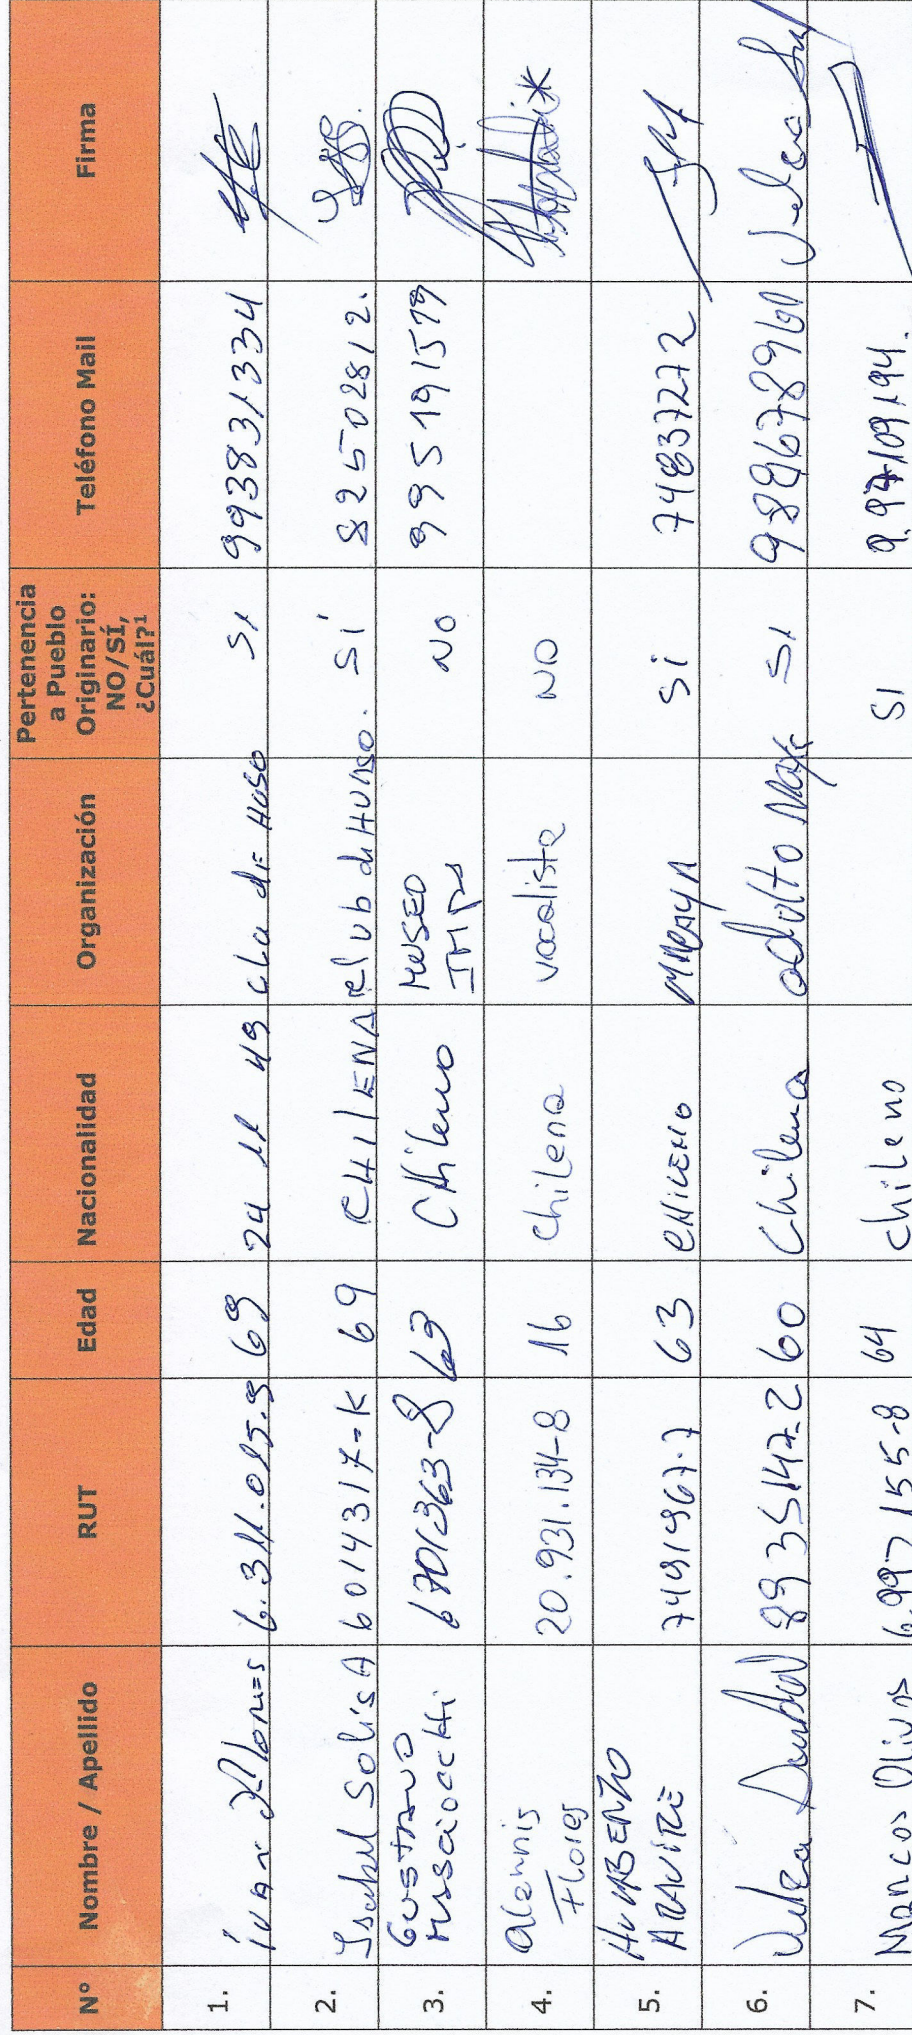 Nº Nombre / Apellido RUT Edad Nacionalidad Organización Pertenencia a Pueblo Originario: NO/SÍ, ¿Cuál?¹ Teléfono Mail Firma
1. Ivan Flores 69 24 11 49 SI 993831334
2. Isabel Solis A 6014317-K 69 CHILENA Club de Huaso. SÍ 82502812.
3. GUSTAVO 6701363-8 63 CHileno MUSEO NO 995191579
4. Alennis Flores 20.931.134-8 16 chilena vocalista NO
5. HUMBERTO ARAVIRE 7491967-7 63 CHILENO SÍ 74837272
6. 8935147-2 60 Chilena adulto May SI
7. Marcos Olivos 6.997.155-8 64 chileno SI 9.97109194.